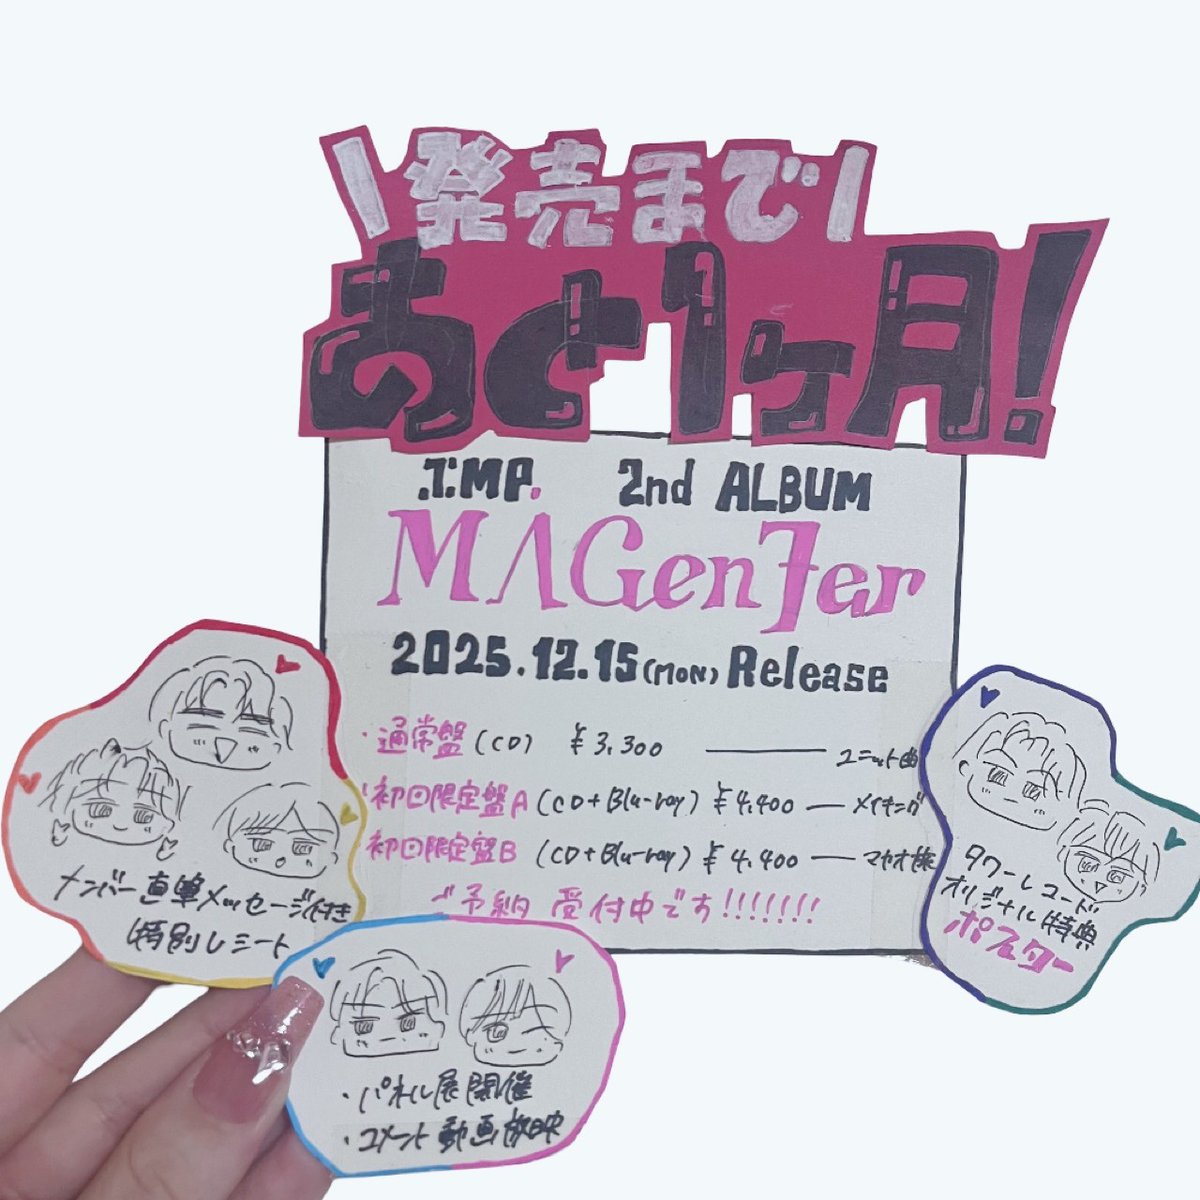 \発売まで/
あと1ヶ月!
.IMP. 2nd ALBUM
MAGenTer
2025.12.15(MON) Release
・通常盤(CD) ¥3,300 ― ユニット曲
・初回限定盤A(CD+Blu-ray) ¥4,400 ― メイキング
・初回限定盤B(CD+Blu-ray) ¥4,400 ―
ご予約受付中です!!!!!!!
メンバー直筆メッセージ付き
特別レシート
・パネル展開催
・コメント動画放映
タワーレコード
オリジナル特典
ポスター